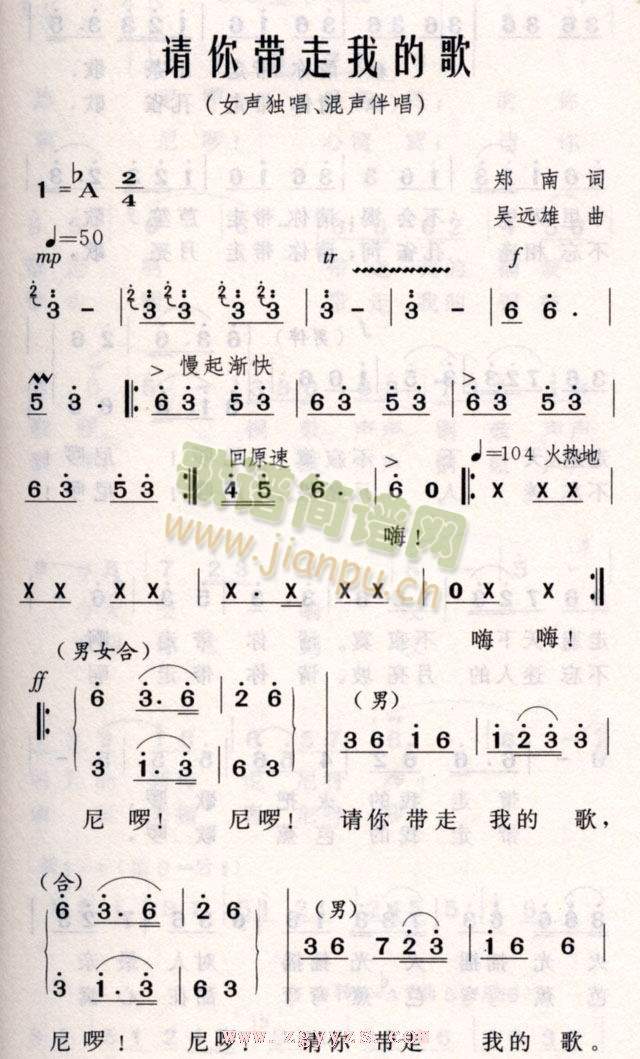 请你带走我的歌
(女声独唱、混声伴唱)
1=♭A 2/4
郑南词
吴远雄曲
♩=50
mp tr f
3 - | 3 3 3 3 | 3 - | 3 3 | 3 - | 6 6. |
> 慢起渐快 >
5 3. ‖: 6 3 5 3 | 6 3 5 3 | 6 3 5 3 |
回原速 > ♩=104 火热地
6 3 5 3 :‖ 4 5 6. | 6 0 ‖: X X X X |
嗨!
X X X X | X X X X | 0 X X X :‖
嗨 嗨!
(男女合)
ff (男)
6 3. 6 | 2 6
3 6 1 6 | 1 2 3 3 |
3 1. 3 | 6 3
尼啰! 尼啰! 请你带走 我的 歌,
(合) (男)
6 3. 6 | 2 6
3 6 7 2 3 | 1 6 6 |
3 1. 3 | 6 3
尼啰! 尼啰! 请你带走 我的歌。
歌谱简谱网
www.jianpu.cn
www.zgyyzs.com